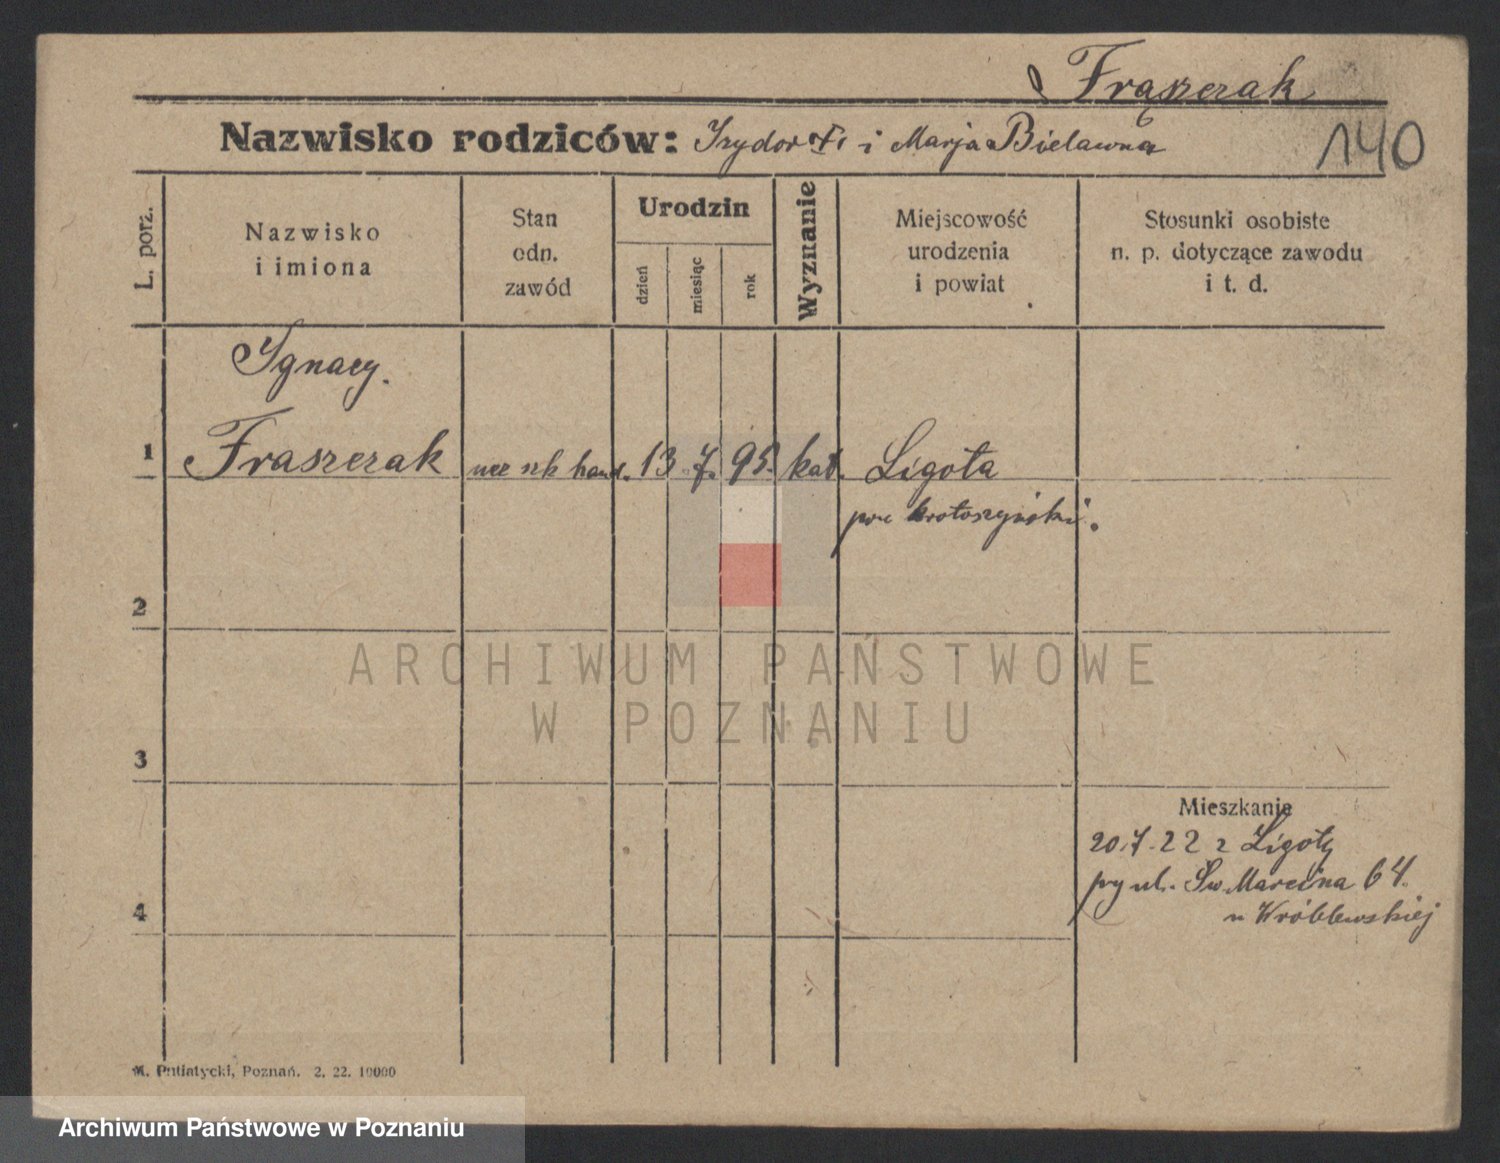 Fraszczak
140
Nazwisko rodziców: Izydor i Marja Bielawna
L. porz.
Nazwisko
i imiona
Stan
odn.
zawód
Urodzin
dzień
miesiąc
rok
Wyznanie
Miejscowość
urodzenia
i powiat
Stosunki osobiste
n. p. dotyczące zawodu
i t. d.
Ignacy.
1 Fraszczak ucz szk hand. 13. 7. 95. kat. Ligota
pow krotoszyński.
2
ARCHIWUM PAŃSTWOWE
W POZNANIU
3
Mieszkanie
20.7.22 z Ligoty
przy ul. Św. Marcina 64.
u Wróblewskiej
4
M. Putiatycki, Poznań. 2. 22. 10000
Archiwum Państwowe w Poznaniu